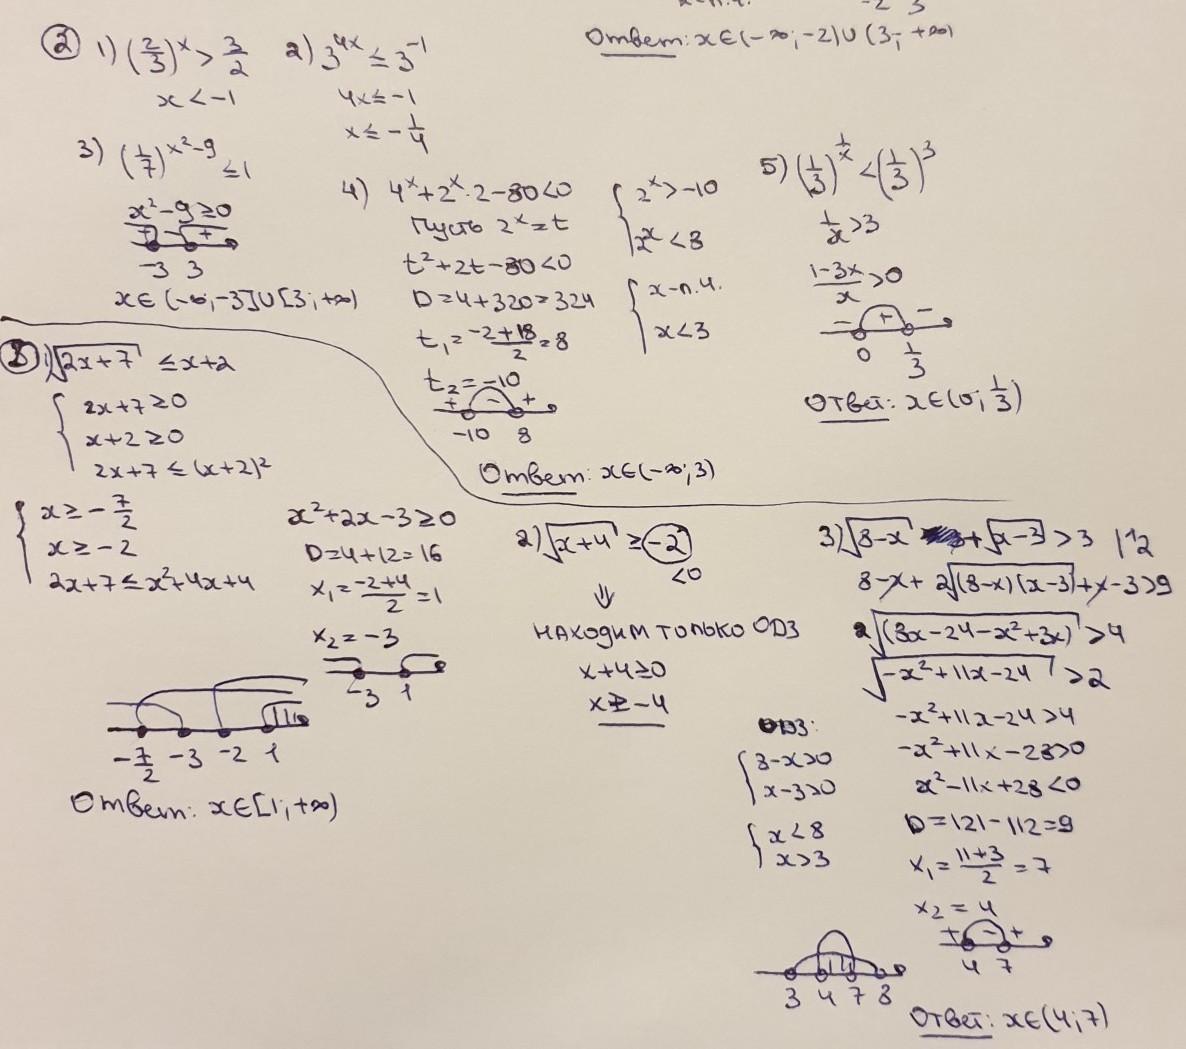 -2 3
Ответ: x∈(-∞;-2)∪(3;+∞)
② 1) (2/3)^x > 3/2
x < -1
2) 3^4x ≤ 3^-1
4x ≤ -1
x ≤ -1/4
3) (1/7)^x²-9 ≤ 1
x²-9 ≥ 0
+ - +
-3 3
x∈(-∞;-3]∪[3;+∞)
4) 4^x + 2^x · 2 - 80 < 0
Пусть 2^x = t
t² + 2t - 80 < 0
D = 4 + 320 = 324
t₁ = (-2+18)/2 = 8
t₂ = -10
+ - +
-10 8
{ 2^x > -10
2^x < 8
{ x - л.ч.
x < 3
Ответ: x∈(-∞;3)
5) (1/3)^1/x < (1/3)^3
1/x > 3
(1-3x)/x > 0
- + -
0 1/3
Ответ: x∈(0;1/3)
③ 1) √(2x+7) ≤ x+2
{ 2x+7 ≥ 0
x+2 ≥ 0
2x+7 ≤ (x+2)²
{ x ≥ -7/2
x ≥ -2
2x+7 ≤ x²+4x+4
x²+2x-3 ≥ 0
D = 4+12 = 16
x₁ = (-2+4)/2 = 1
x₂ = -3
-3 1
-7/2 -3 -2 1
Ответ: x∈[1;+∞)
2) √(x+4) ≥ -2
<0
⇓
НАХОДИМ ТОЛЬКО ОДЗ
x+4 ≥ 0
x ≥ -4
3) √(8-x) + √(x-3) > 3 |^2
8-x + 2√((8-x)(x-3)) + x-3 > 9
2√(8x-24-x²+3x) > 4
√(-x²+11x-24) > 2
-x²+11x-24 > 4
-x²+11x-28 > 0
x²-11x+28 < 0
D = 121-112 = 9
x₁ = (11+3)/2 = 7
x₂ = 4
+ - +
4 7
ОДЗ:
{ 8-x > 0
x-3 > 0
{ x < 8
x > 3
3 4 7 8
Ответ: x∈(4;7)